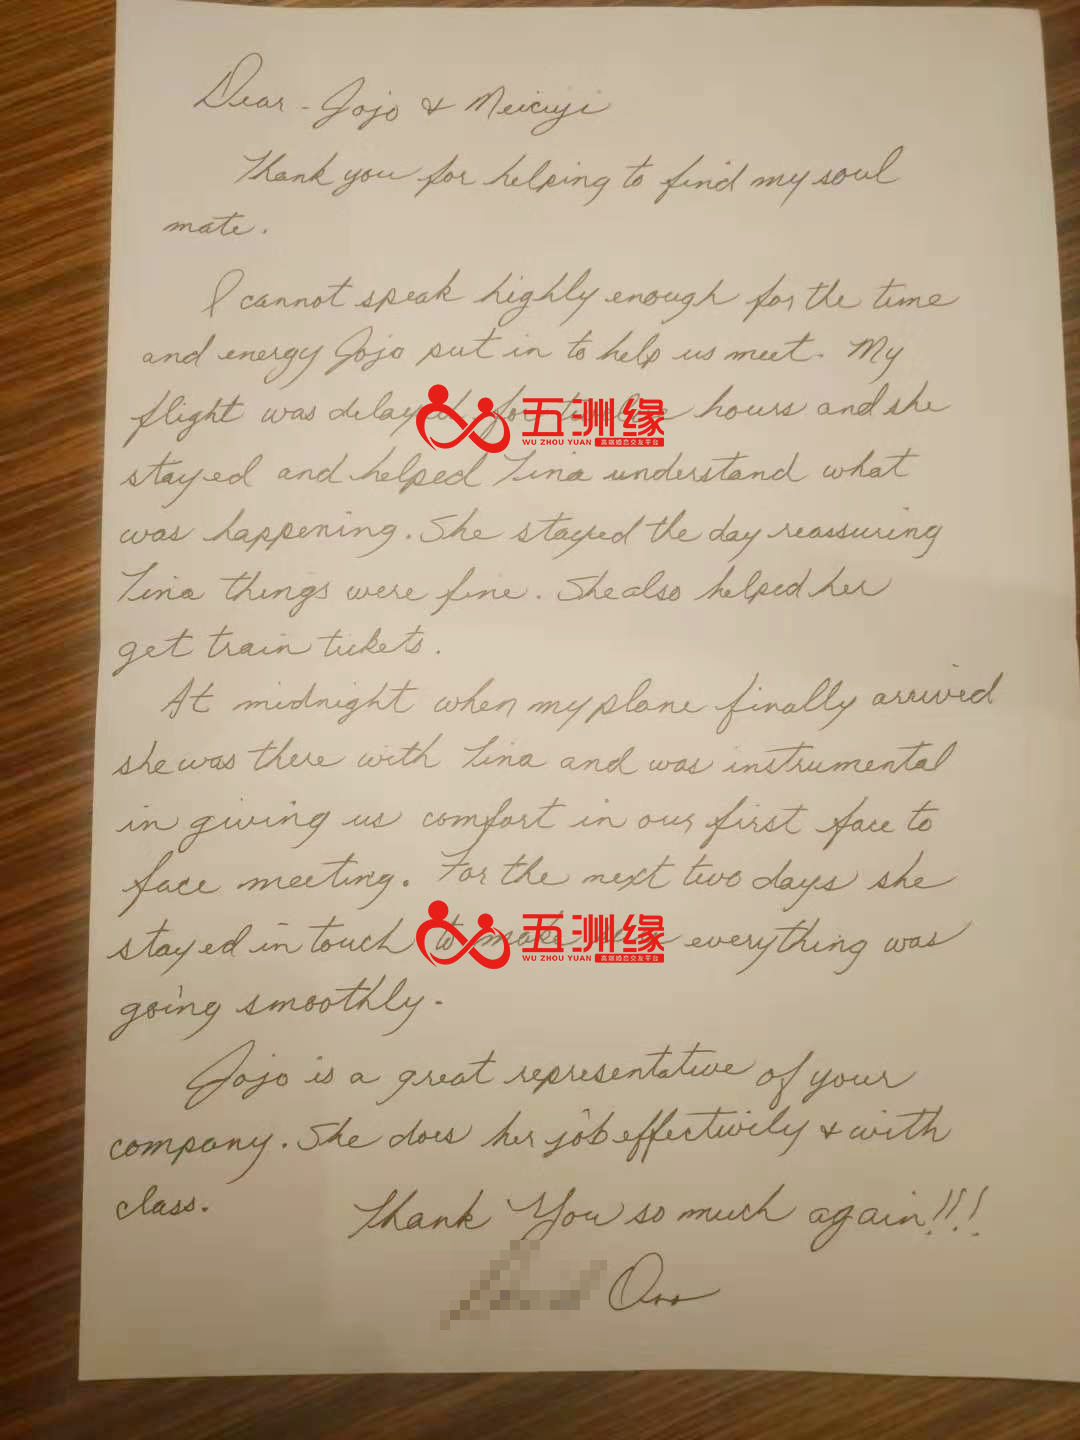 Dear - Jojo & Meicuji
Thank you for helping to find my soul
mate.
I cannot speak highly enough for the time
and energy Jojo put in to help us meet. My
flight was delayed for twelve hours and she
五洲缘
WU ZHOU YUAN 高端婚恋交友平台
stayed and helped Tina understand what
was happening. She stayed the day reassuring
Tina things were fine. She also helped her
get train tickets.
At midnight when my plane finally arrived
she was there with Tina and was instrumental
in giving us comfort in our first face to
face meeting. For the next two days she
stayed in touch to make everything was
五洲缘
WU ZHOU YUAN 高端婚恋交友平台
going smoothly.
Jojo is a great representative of your
company. She does her job effectively & with
class.
Thank You so much again!!!